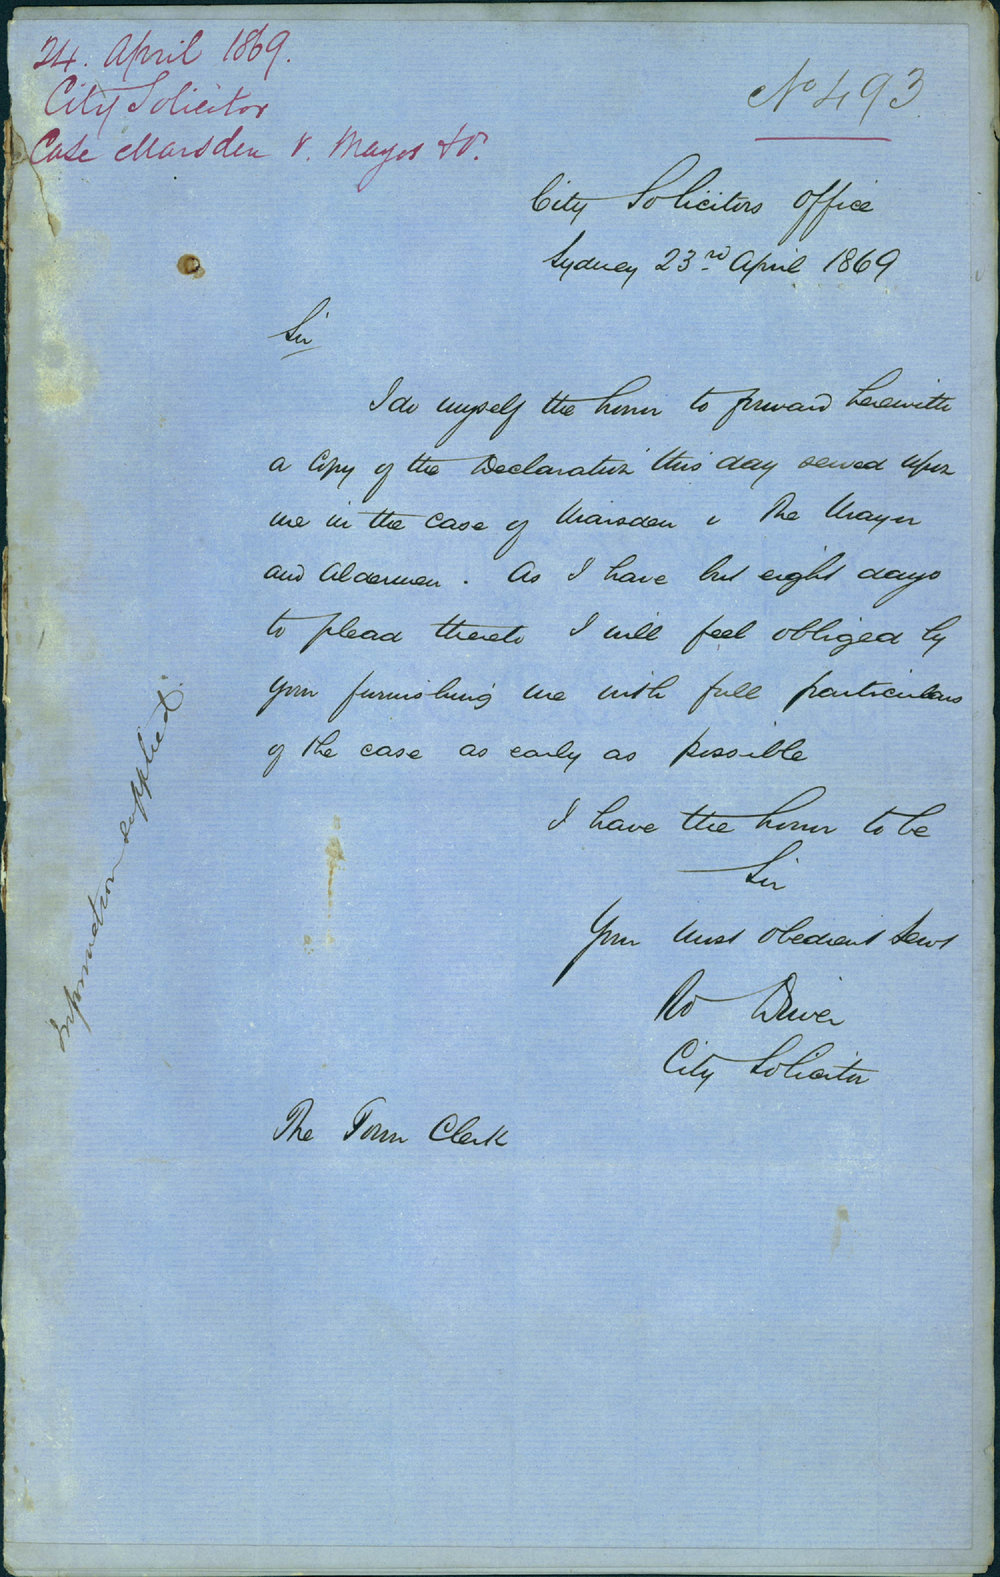 24. April 1869.
City Solicitor
Case Marsden v. Mayor &c.
No 493
City Solicitors Office
Sydney 23rd April 1869
Sir
I do myself the honor to forward herewith
a Copy of the Declaration this day served upon
me in the case of Marsden v The Mayor
and Aldermen. As I have but eight days
to plead thereto I will feel obliged by
your furnishing me with full particulars
of the case as early as possible
I have the honor to be
Sir
Your Most obedient Servt
Rd Driver
City Solicitor
The Town Clerk
Information supplied.